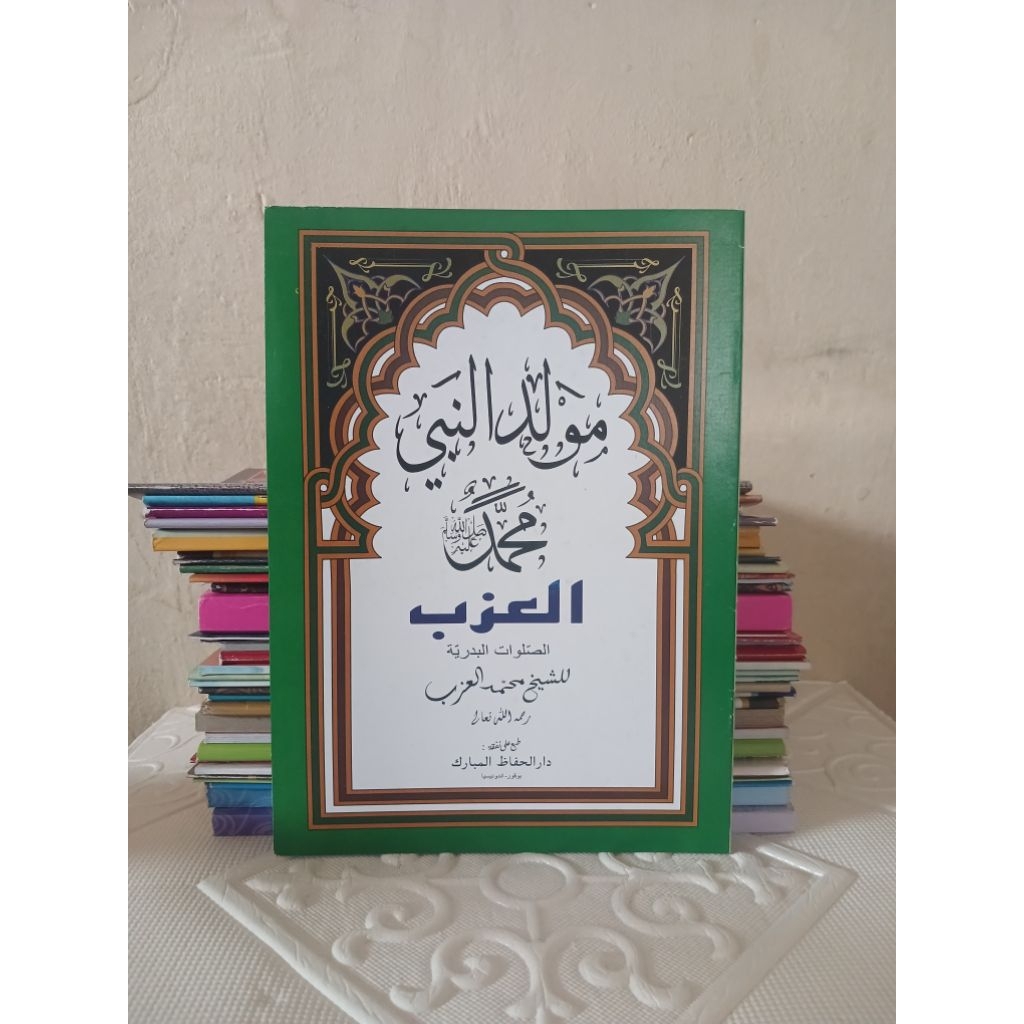 مَوْلِد النَّبِي
مُحَمَّدٌ ﷺ
العزب
الصّلوات البدريّة
للشيخ محمد العزب
رحمه الله تعالى
طبع على نفقة :
دارالحفاظ المبارك
بوقور-اندونيسيا